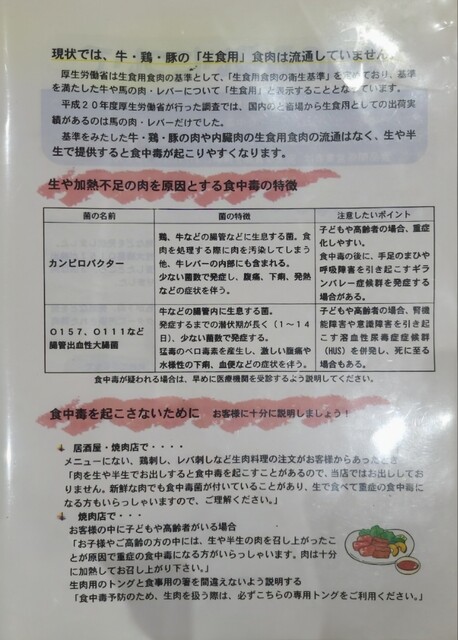 現状では、牛・鶏・豚の「生食用」食肉は流通していません。
厚生労働省は生食用食肉の基準として、「生食用食肉の衛生基準」を定めており、基準
を満たした牛や馬の肉・レバーについて「生食用」と表示することとなっています。
平成２０年度厚生労働省が行った調査では、国内のと畜場から生食用としての出荷実
績があるのは馬の肉・レバーだけでした。
基準をみたした牛・鶏・豚の肉や内臓肉の生食用食肉の流通はなく、生や半
生で提供すると食中毒が起こりやすくなります。
生や加熱不足の肉を原因とする食中毒の特徴
菌の名前
菌の特徴
注意したいポイント
カンピロバクター
鶏、牛などの腸管などに生息する菌。食
肉を処理する際に肉を汚染してしまう
他、牛レバーの内部にも含まれる。
少ない菌数で発症し、腹痛、下痢、発熱
などの症状を伴う。
子どもや高齢者の場合、重症
化しやすい。
食中毒の後に、手足のまひや
呼吸障害を引き起こすギラ
ンバレー症候群を発症する
場合がある。
Ｏ１５７、Ｏ１１１など
腸管出血性大腸菌
牛などの腸管内に生息する菌。
発症するまでの潜伏期が長く（１～１４
日）、少ない菌数で発症する。
猛毒のベロ毒素を産生し、激しい腹痛や
水様性の下痢、血便などの症状を伴う。
子どもや高齢者の場合、腎機
能障害や意識障害を引き起
こす溶血性尿毒症症候群
（HUS）を併発し、死に至る
場合もある。
食中毒が疑われる場合は、早めに医療機関を受診するよう説明してください。
食中毒を起こさないために お客様に十分に説明しましょう！
居酒屋・焼肉店で・・・・
メニューにない、鶏刺し、レバ刺しなど生肉料理の注文がお客様からあったとき
「肉を生や半生でお出しすると食中毒を起こすことがあるので、当店ではお出ししてお
りません。新鮮な肉でも食中毒菌が付いていることがあり、生で食べて重症の食中毒に
なる方もいらっしゃいますので、ご理解ください。」
焼肉店で・・・
お客様の中に子どもや高齢者がいる場合
「お子様やご高齢の方の中には、生や半生の肉を召し上がったこ
とが原因で重症の食中毒になる方がいらっしゃいます。肉は十分
に加熱してお召し上がり下さい。」
生肉用のトングと食事用の箸を間違えないよう説明する
「食中毒予防のため、生肉を扱う際は、必ずこちらの専用トングをご利用ください。」